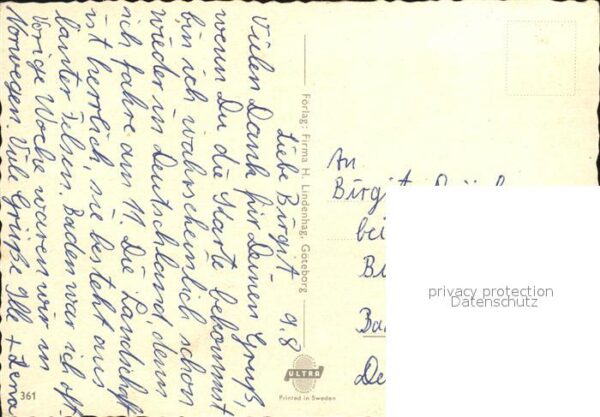 Liebe Birgit 9.8
Vielen Dank für Deinen Gruß,
wenn Du die Karte bekommst
bin ich wahrscheinlich schon
wieder in Deutschland, denn
ich fahre am 11. Die Landschaft
ist herrlich, sie besteht aus
lauter Felsen. Baden war ich oft.
Vorige Woche waren wir in
Norwegen. Viele Grüße
Förlag: Firma H. Lindenhag, Göteborg
An
Birgit
bei
Ba
De
privacy protection
Datenschutz
361
ULTRA
Printed in Sweden